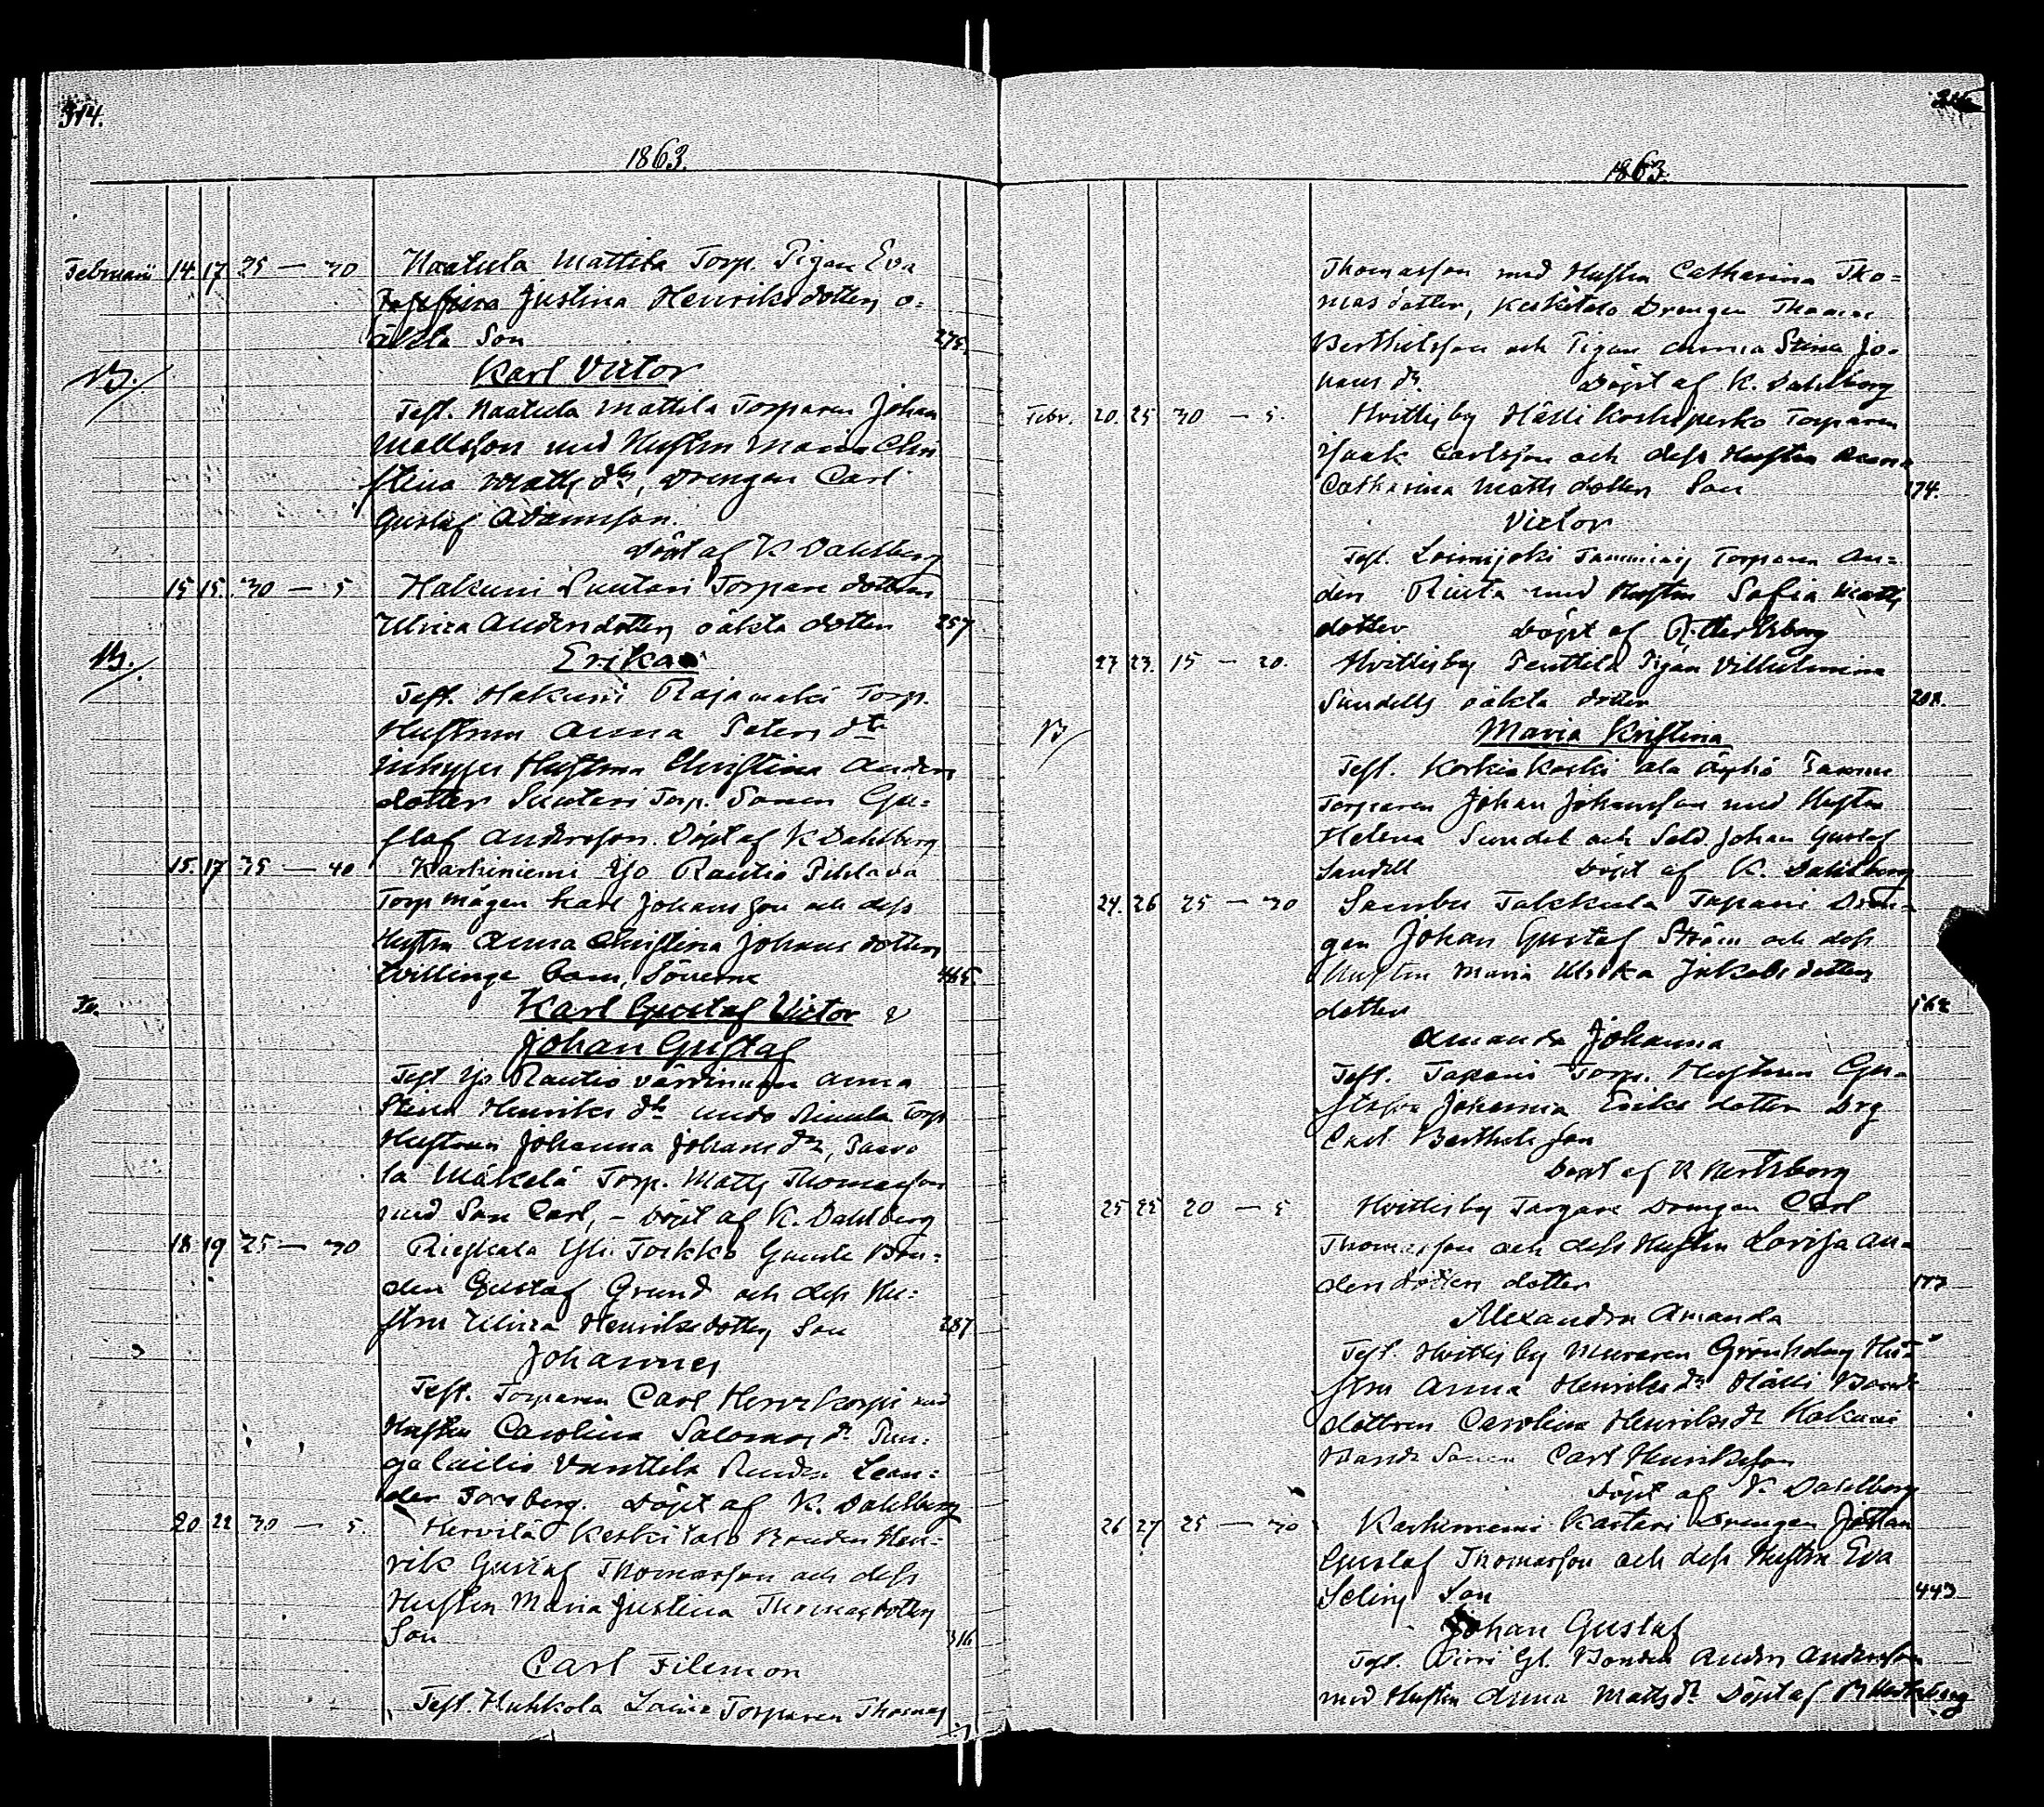 314.
1863.
Februarii 14. 17. 25 — 30 Naatula Mattila Torp. Pigan Eva
Justina Henriksdotters o-
äkta Son 275.
Karl Victor
Test. Naatula Mattila Torparen Johan
Mattsson med Hustru Maria Chri
stina Matts dr, Drengen Carl
Gustaf Adamsson.
Döpt af K Dahlberg
15 15. 30 — 5 Hakuni Suutari Torpare dottern
Ulrica Andersdotters oäkta dotter 257
Erika
Test. Hakuni Rajamäki Torp.
Hustrun Anna Peters dr
Hustrun Christina Anders
dotter Suutari Torp. Sonen Gu-
staf Andersson. Döpt af K Dahlberg
15. 17 35 — 40 Karhiniemi Yjo Rautio Pihlava
Torp mågen Karl Johansson och dess
Hustru Anna Christina Johans dotters
tvillinge barn, Sönerne 445.
Karl Gustaf Victor &
Johan Gustaf
Test Yjo Rautio värdinnan Anna
Stina Henriks dr Torp
Hustrun Johanna Johans dr, Paavo
la Mäkelä Torp. Matts Thomasson
med Son Carl, – Döpt af K. Dahlberg
18 19 25 — 30 Rieskala Yli Torkko Bon-
den Gustaf Grund och dess Hu-
stru Ulrica Henriksdotters Son 287
Johannes
Test. Torparen Carl Hervikorpi med
Hustru Carolina Salomons dr Pun-
galaitio Vanttila Lean-
der Forsberg. Döpt af K. Dahlberg
20 22 30 — 5. Hervilä Keskitalo Bonden Hen-
rik Gustaf Thomasson och dess
Hustru Maria Justina Thomasdotters
Son 316
Carl Filemon
Test. Huhkola Torparen Thomas
1863.
Thomasson med Hustru Catharina Tho-
mas dotter, Keskitalo Drengen Thomas
Berthilsson och Pigan Anna Stina Jo-
hans dr. Döpt af K. Dahlberg
Febr. 20. 25 30 — 5. Hvittisby Hälli Torparen
Isaak Carlsson och dess Hustru Anna
Catharina Matts dotters Son 174.
Victor
Test. Loimijoki Torparen An-
ders Rinta med Hustru Sofia Matts
dotter Döpt af R. Hertzberg
23 23. 15 — 20. Hvittisby Penttilä Pigan Vilhelmina
Sundells oäkta dotter 208.
Maria Kristina
Test. Korkiakoski ala
Torparen Johan Johansson med Hustru
Helena Sundel och Sold. Johan Gustaf
Sundell Döpt af K. Dahlberg
24. 26 25 — 30 Sambu Takkula Tapani Dren-
gen Johan Gustaf Ström och dess
Hustru Maria Ulrika Jakobs dotters
dotter 162
Amanda Johanna
Test. Tapani Torp. Hustrun Gu-
stafva Johanna Eriks dotter Drg
Carl Berthelsson
Döpt af R Hertzberg
25 25 20 — 5 Hvittisby Drengen Carl
Thomasson och dess Hustru Lovisa An-
ders dotters dotter 177
Alexandra Amanda
Test. Hvittisby Muraren Grönholms Hu-
stru Anna Henriks dr Hälli Bonde
dottren Carolina Henriks dr Hakuni
Bonde Sonen Carl Henriksson
Döpt af K. Dahlberg
26 27 25 — 30 Karhiniemi Kartari Drengen Johan
Gustaf Thomasson och dess Hustru Eva
Selins Son 443
Johan Gustaf
Test. Gl. Bonden Anders Andersson
med Hustru Anna Matts dr Döpt af R Hertzberg